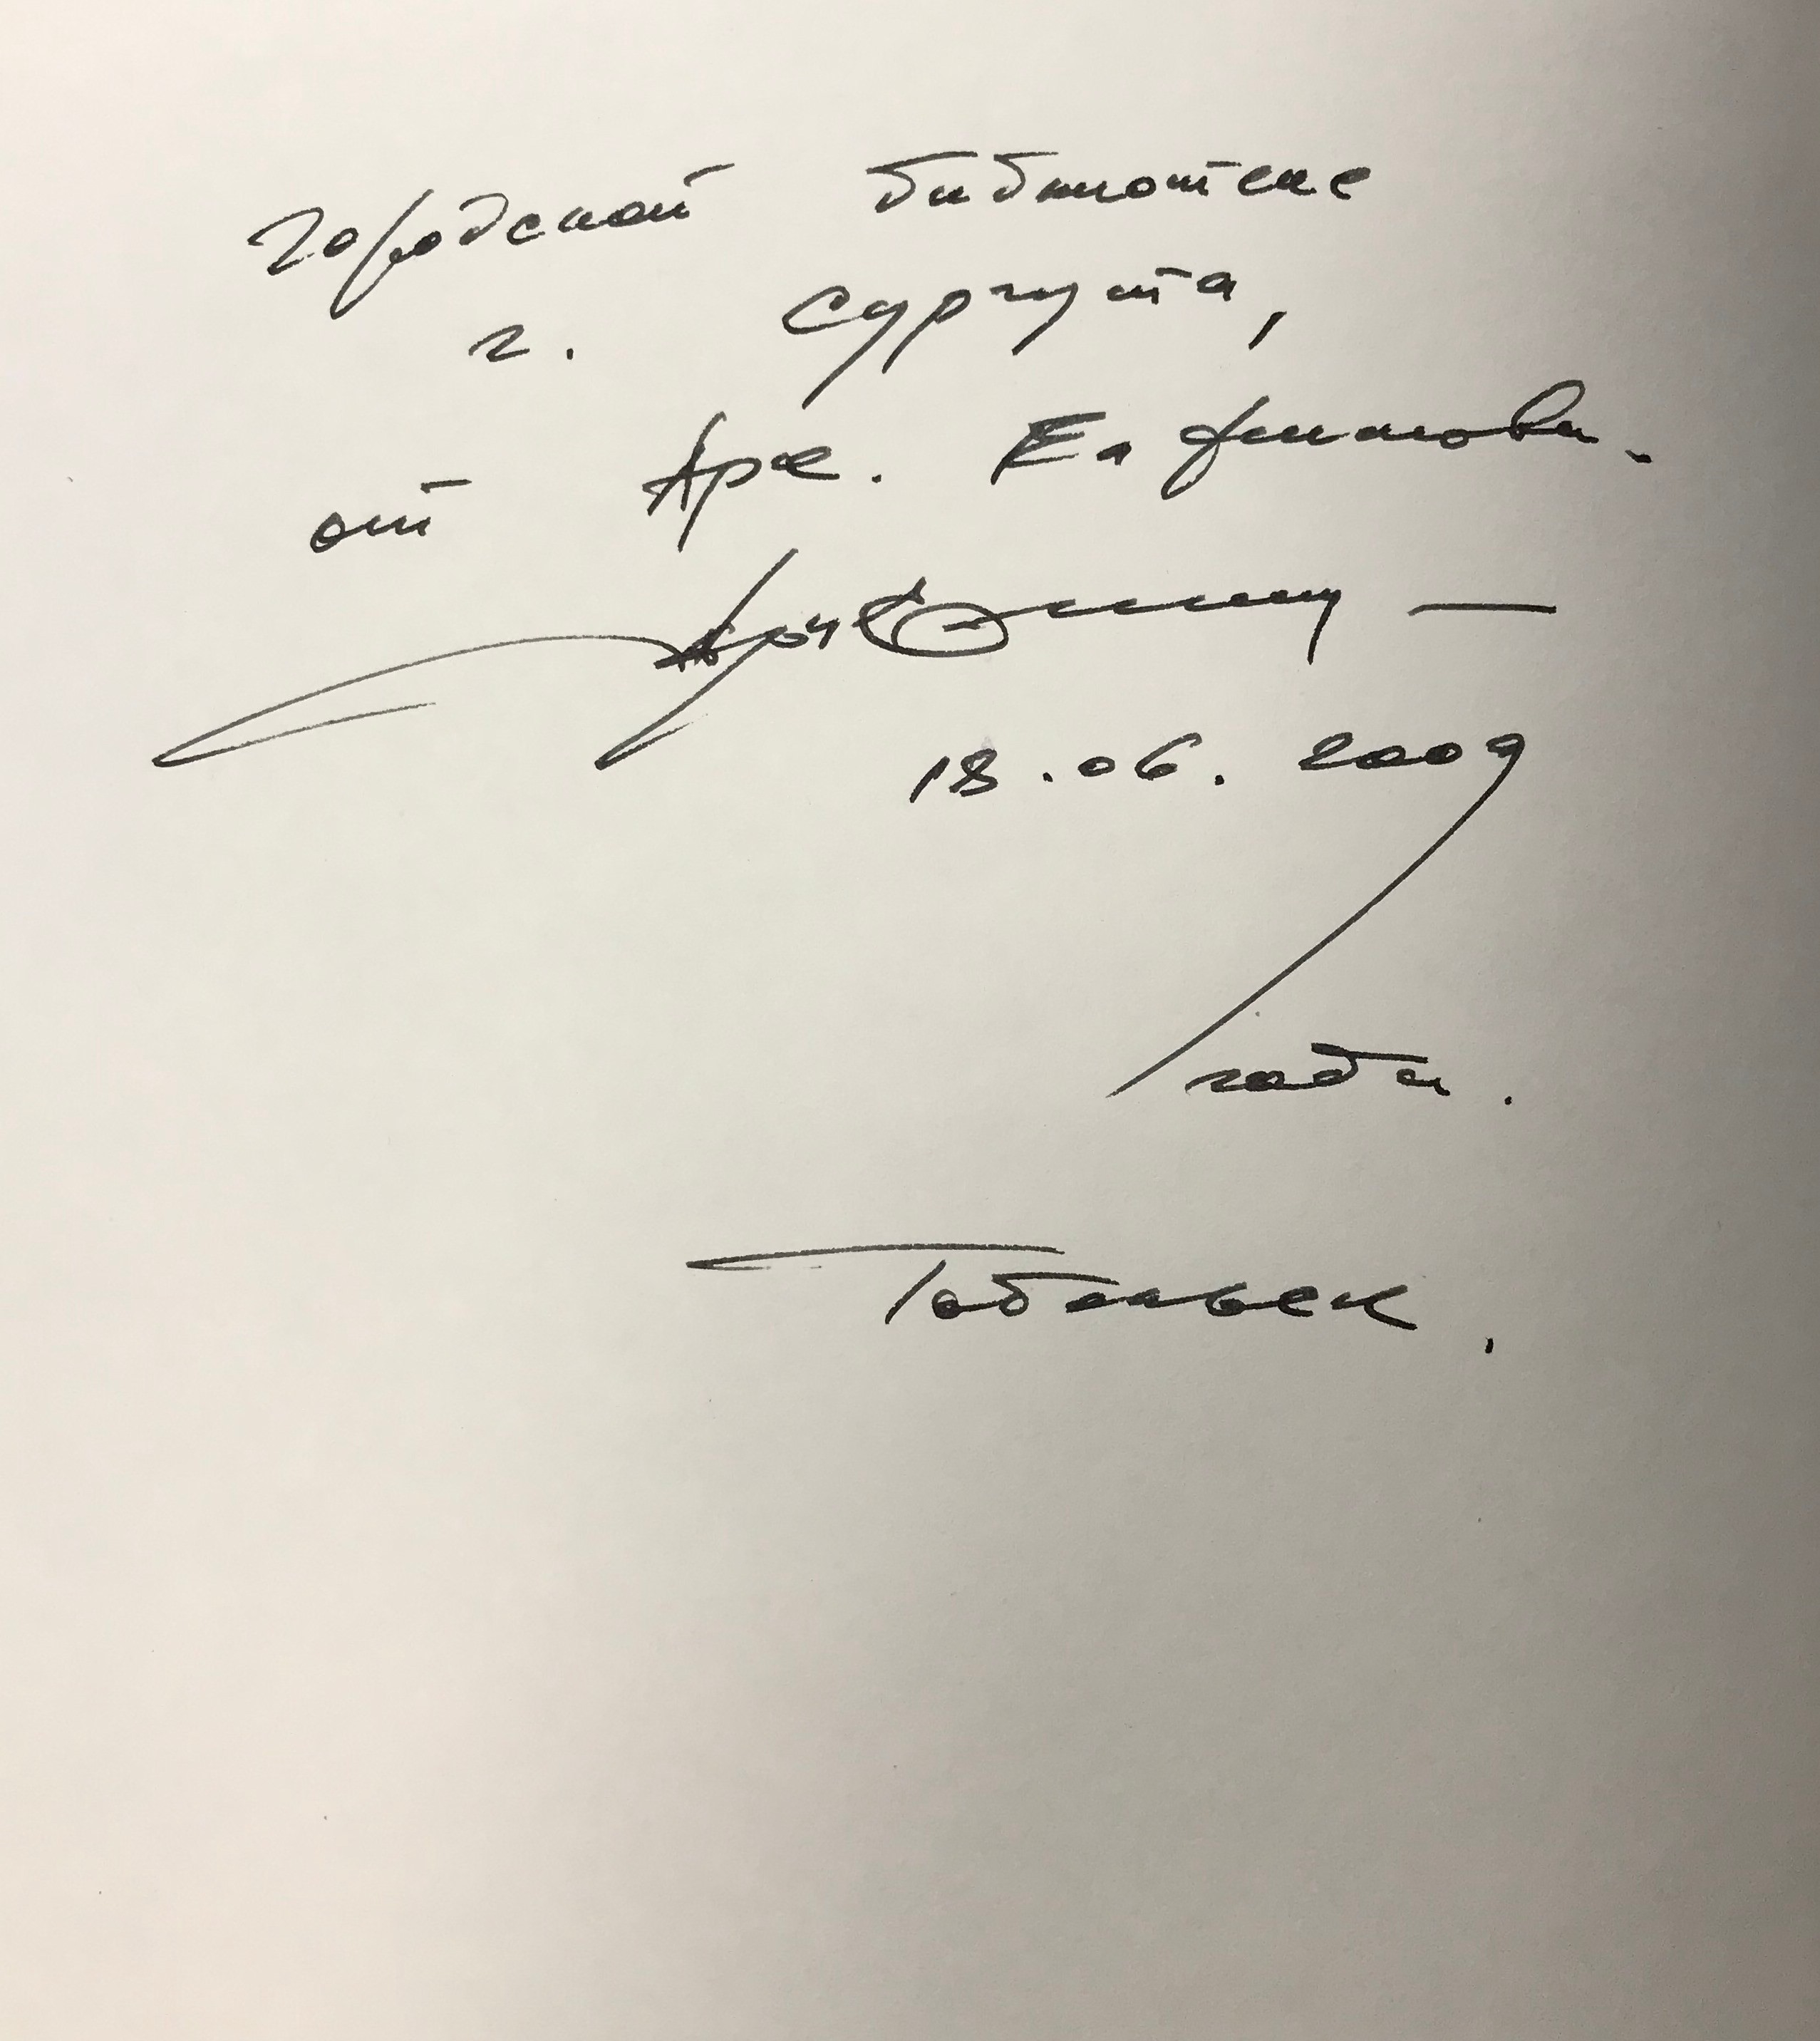 городской библиотеке
г. Сургута,
от Арк. Елфимова.
18.06.2009
года.
Тобольск.